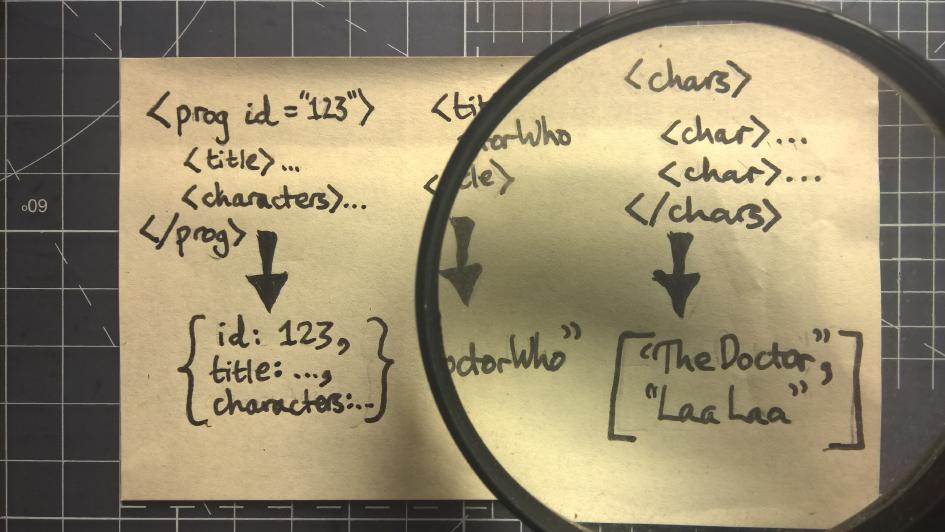 <prog id="123">
<title>...
<characters>...
</prog>
{ id: 123,
title: ...,
characters:... }
<tit
torWho
tle>
octorWho"
<chars>
<char>...
<char>...
</chars>
["The Doctor",
"Laa Laa"]
60